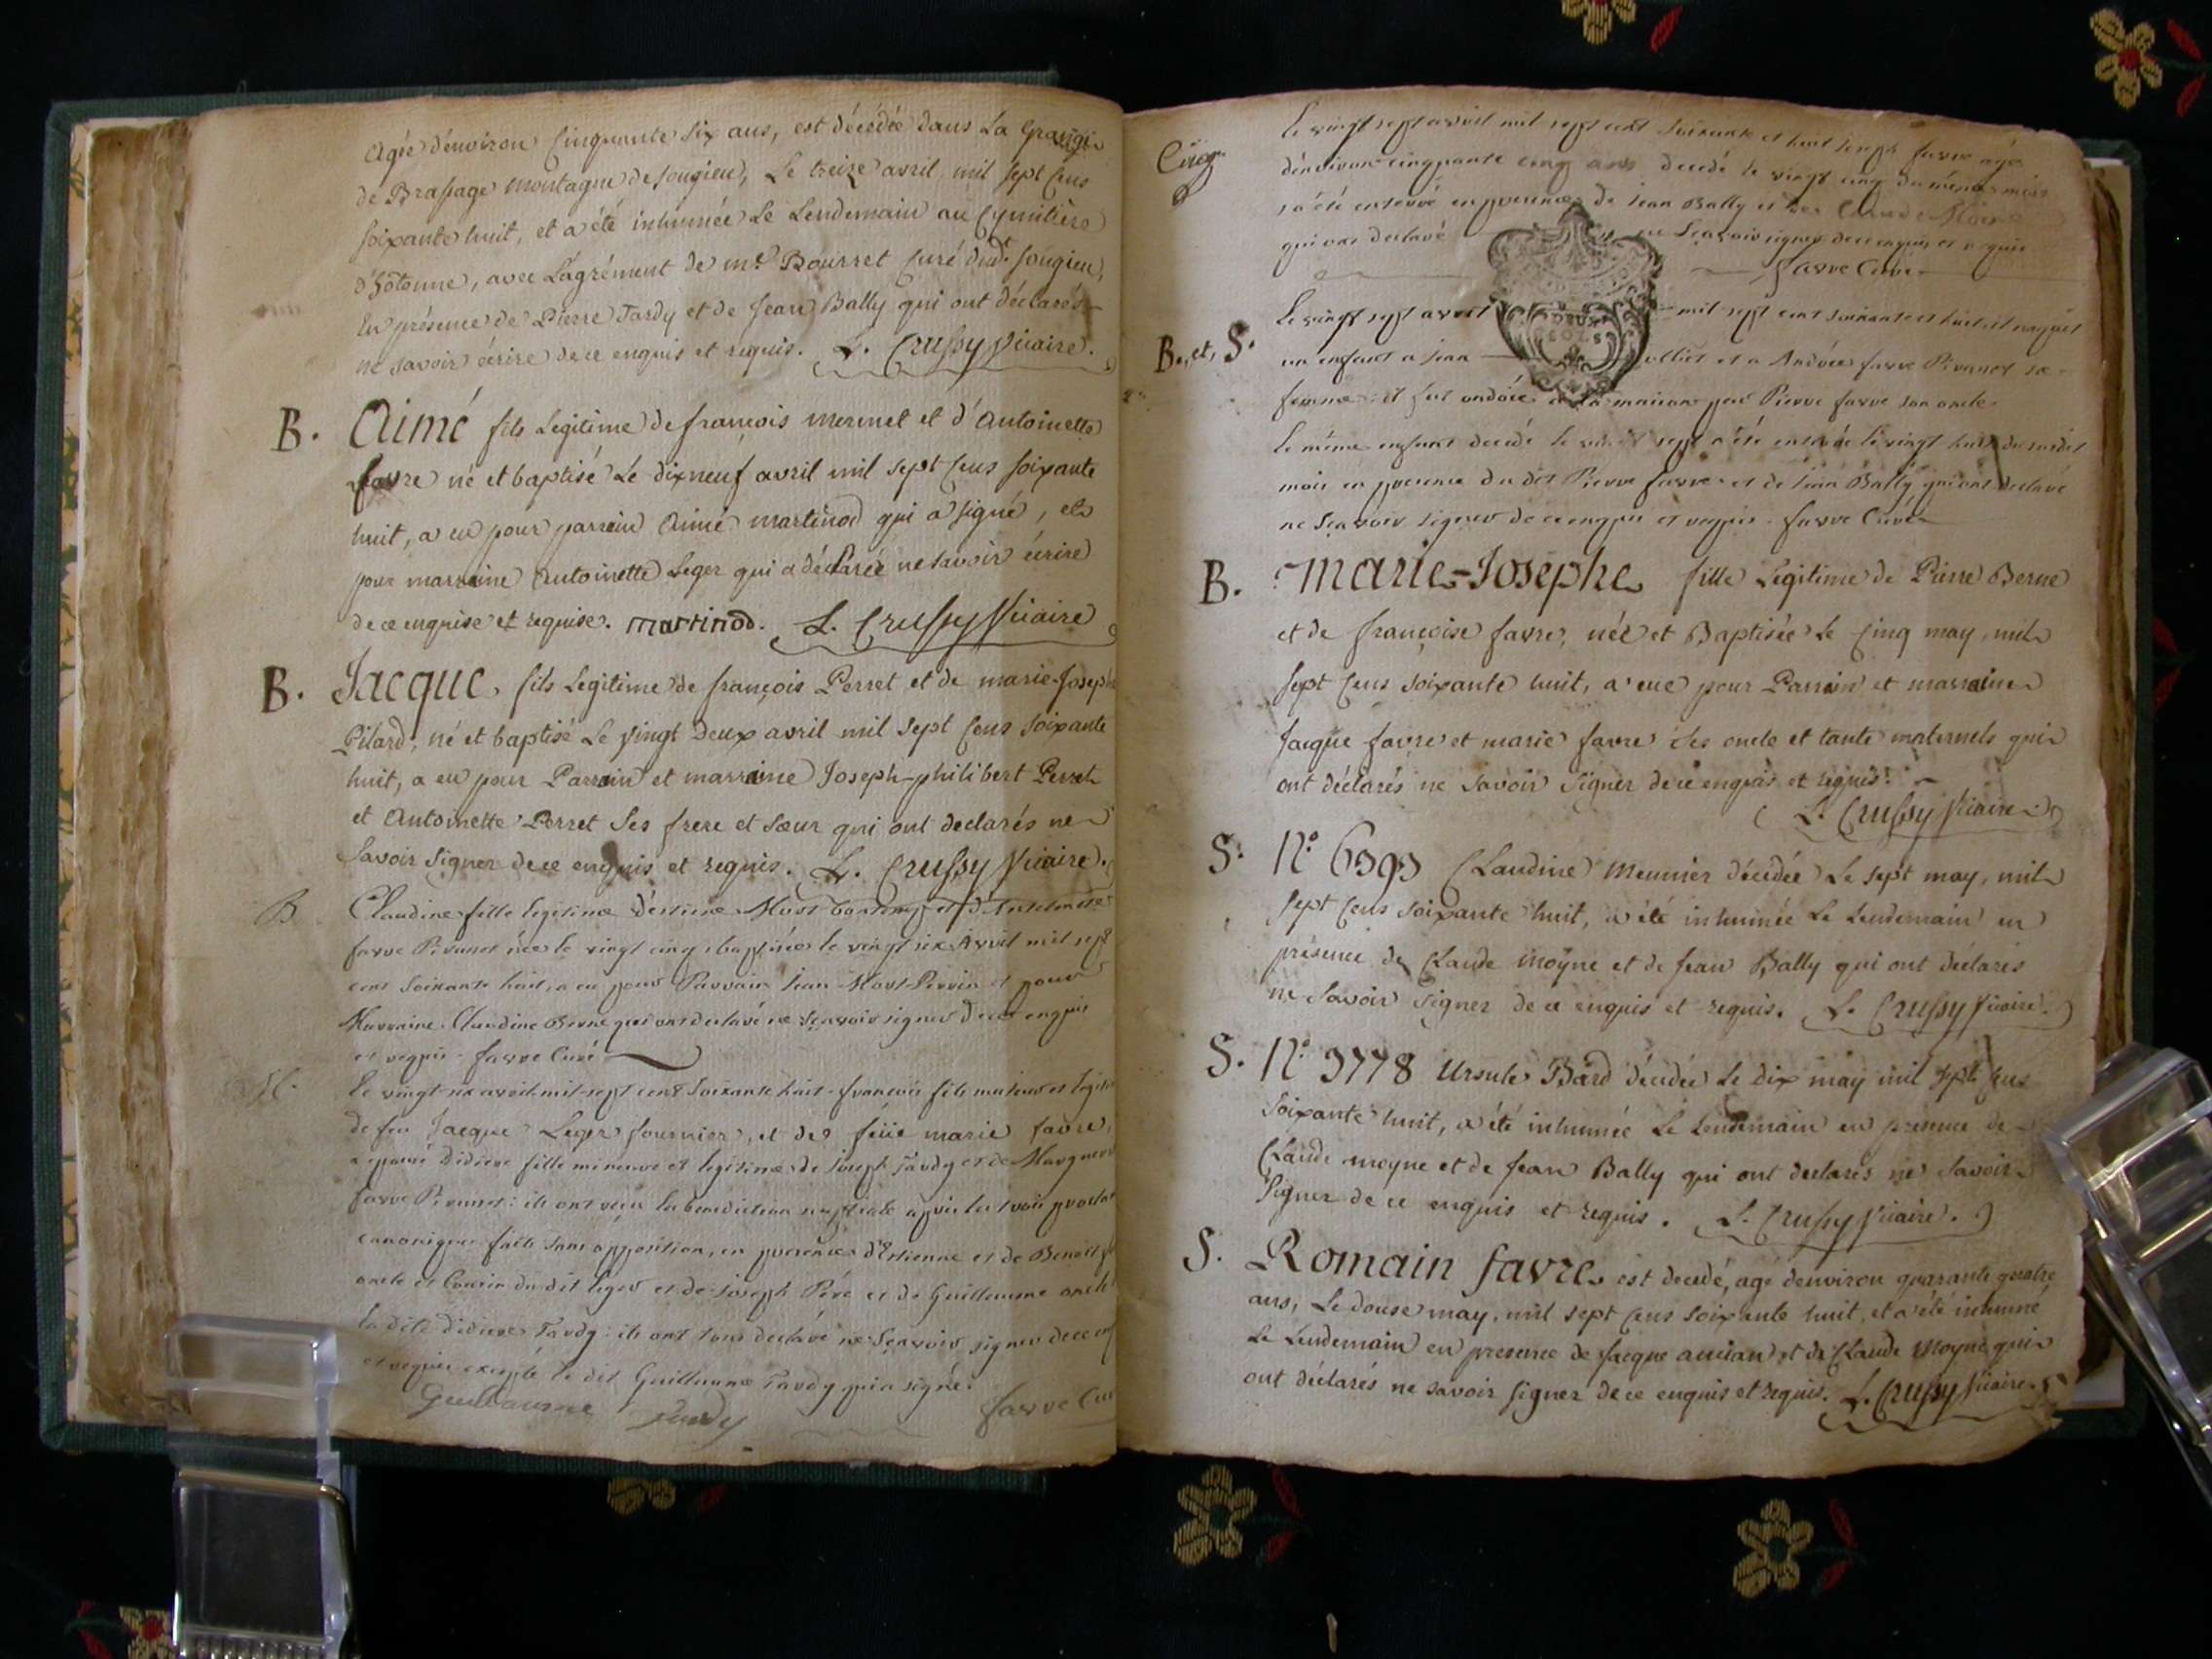 agée d'environ Cinquante Six ans, est décédée dans La Grange
de Brassage montagne de Songieu, Le treize avril, mil sept Cens
soixante huit, et a été inhumée Le Lendemain au Cymitière
d'hôtonne, avec L'agrément de mr. Bourset Curé dud. Songieu,
En présence de Pierre Tardy et de Jean Bally qui ont déclarés
ne savoir écrire de ce enquis et requis. L. Crussy Vicaire.
B. Aimé fils Legitime de françois mermet et d'Antoinette
favre né et baptisé Le dixneuf avril mil sept Cens soixante
huit, a eu pour parrain Aimé martinod qui a signé, et
pour marraine Antoinette Leger qui a déclarée ne savoir écrire
de ce enquise et requise. martinod. L. Crussy Vicaire
B. Jacque, fils Legitime de françois Perret et de marie-Joseph
Pitard, né et baptisé Le vingt deux avril mil sept Cens soixante
huit, a eu pour Parrain et marraine Joseph-philibert Perret
et Antoinette Perret Ses frere et sœur qui ont declarés ne
Savoir Signer de ce enquis et requis. L. Crussy Vicaire.
B Claudine fille legitime d'estiene
favre née le vingt cinq baptisée le vingt six Avril mil sept
cent Soixante huit, a eu pour Parrain Jean et pour
Marraine Claudine Berne qui ont declaré ne Sçavoir signer de ce enquis
et requis. favre Curé
M. le vingt six avril mil sept cent Soixante huit françois fils majeur et legit
de feu Jacque Leger fournier, et de feüe marie favre,
a epousé Didiere fille mineure et legitime de Joseph Tardy et de Marguer
favre : ils ont reçu la benediction nuptiale après les trois proclam
canoniques faites sans opposition, en presence d'Estienne et de Benoît
oncle et Cousin du dit leger et de Joseph Pere et de Guillaume oncle
la dite Didiere Tardy : ils ont tous declaré ne Sçavoir signer de ce en
et requis excepté le dit Guillaume Tardy qui a signé.
Guillaume Tardy favre Cur
le vingt sept avril mil sept cent soixante et huit Joseph favre agé
d'environ cinquante cinq ans decedé le vingt cinq du même mois
a été enterré en presence de Jean Bally et de Claude Moine
qui ont declaré ne Sçavoir signer de ce enquis et requis
favre Curé
B. et, S. Le vingt sept avril mil sept cent soixante et huit il naquit
un enfant a Jean et a Andrée favre sa
femme : il fut ondoié a la maison par Pierre favre son oncle
le même enfant decedé le vingt sept a été enterré le vingt huit du susdit
mois en presence du dit Pierre favre et de Jean Bally qui ont declaré
ne Sçavoir signer de ce enquis et requis. favre Curé
B. marie-Josephe fille Legitime de Pierre Berne
et de françoise favre, née et Baptisée Le Cinq may, mil
sept Cens soixante huit, a eue pour Parrain et marraine
Jacque favre et marie favre Ses oncle et tante maternels qui
ont déclarés ne Savoir Signer de ce enquis et requis.
L. Crussy Vicaire
S. N.o Claudine meunier décédée Le sept may, mil
sept Cens soixante huit, a été inhumée Le Lendemain en
présence de Claude moyne et de Jean Bally qui ont déclarés
ne Savoir Signer de ce enquis et requis. L. Crussy Vicaire.
S. N.o 3778 Ursule Bard décédée Le dix may mil sept Cens
soixante huit, a été inhumée Le Lendemain en présence de
Claude moyne et de Jean Bally qui ont declarés ne Savoir
Signer de ce enquis et requis. L. Crussy Vicaire.
S. Romain favre est decedé, agé denviron quarante quatre
ans, Le douse may, mil sept Cens soixante huit, et a été inhumé
Le Lendemain en presence de Jacque ancian et de Claude moyne qui
ont déclarés ne savoir signer de ce enquis et requis. L. Crussy Vicaire.